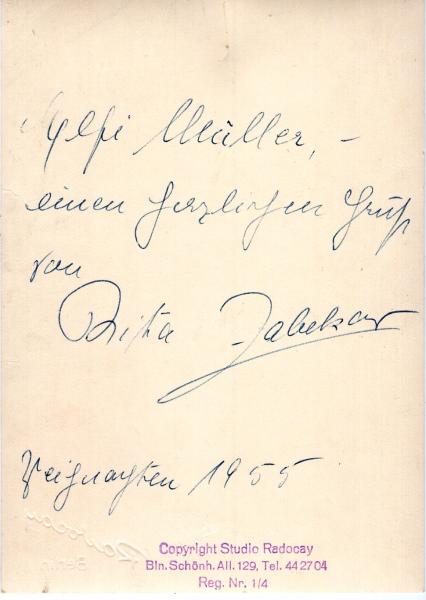 Müller, –
einen herzlichen Gruß
von
Rita Zabekow
Weihnachten 1955
Radocay
Berlin
Copyright Studio Radocay
Bln. Schönh. All. 129, Tel. 44 27 04
Reg. Nr. 1/4